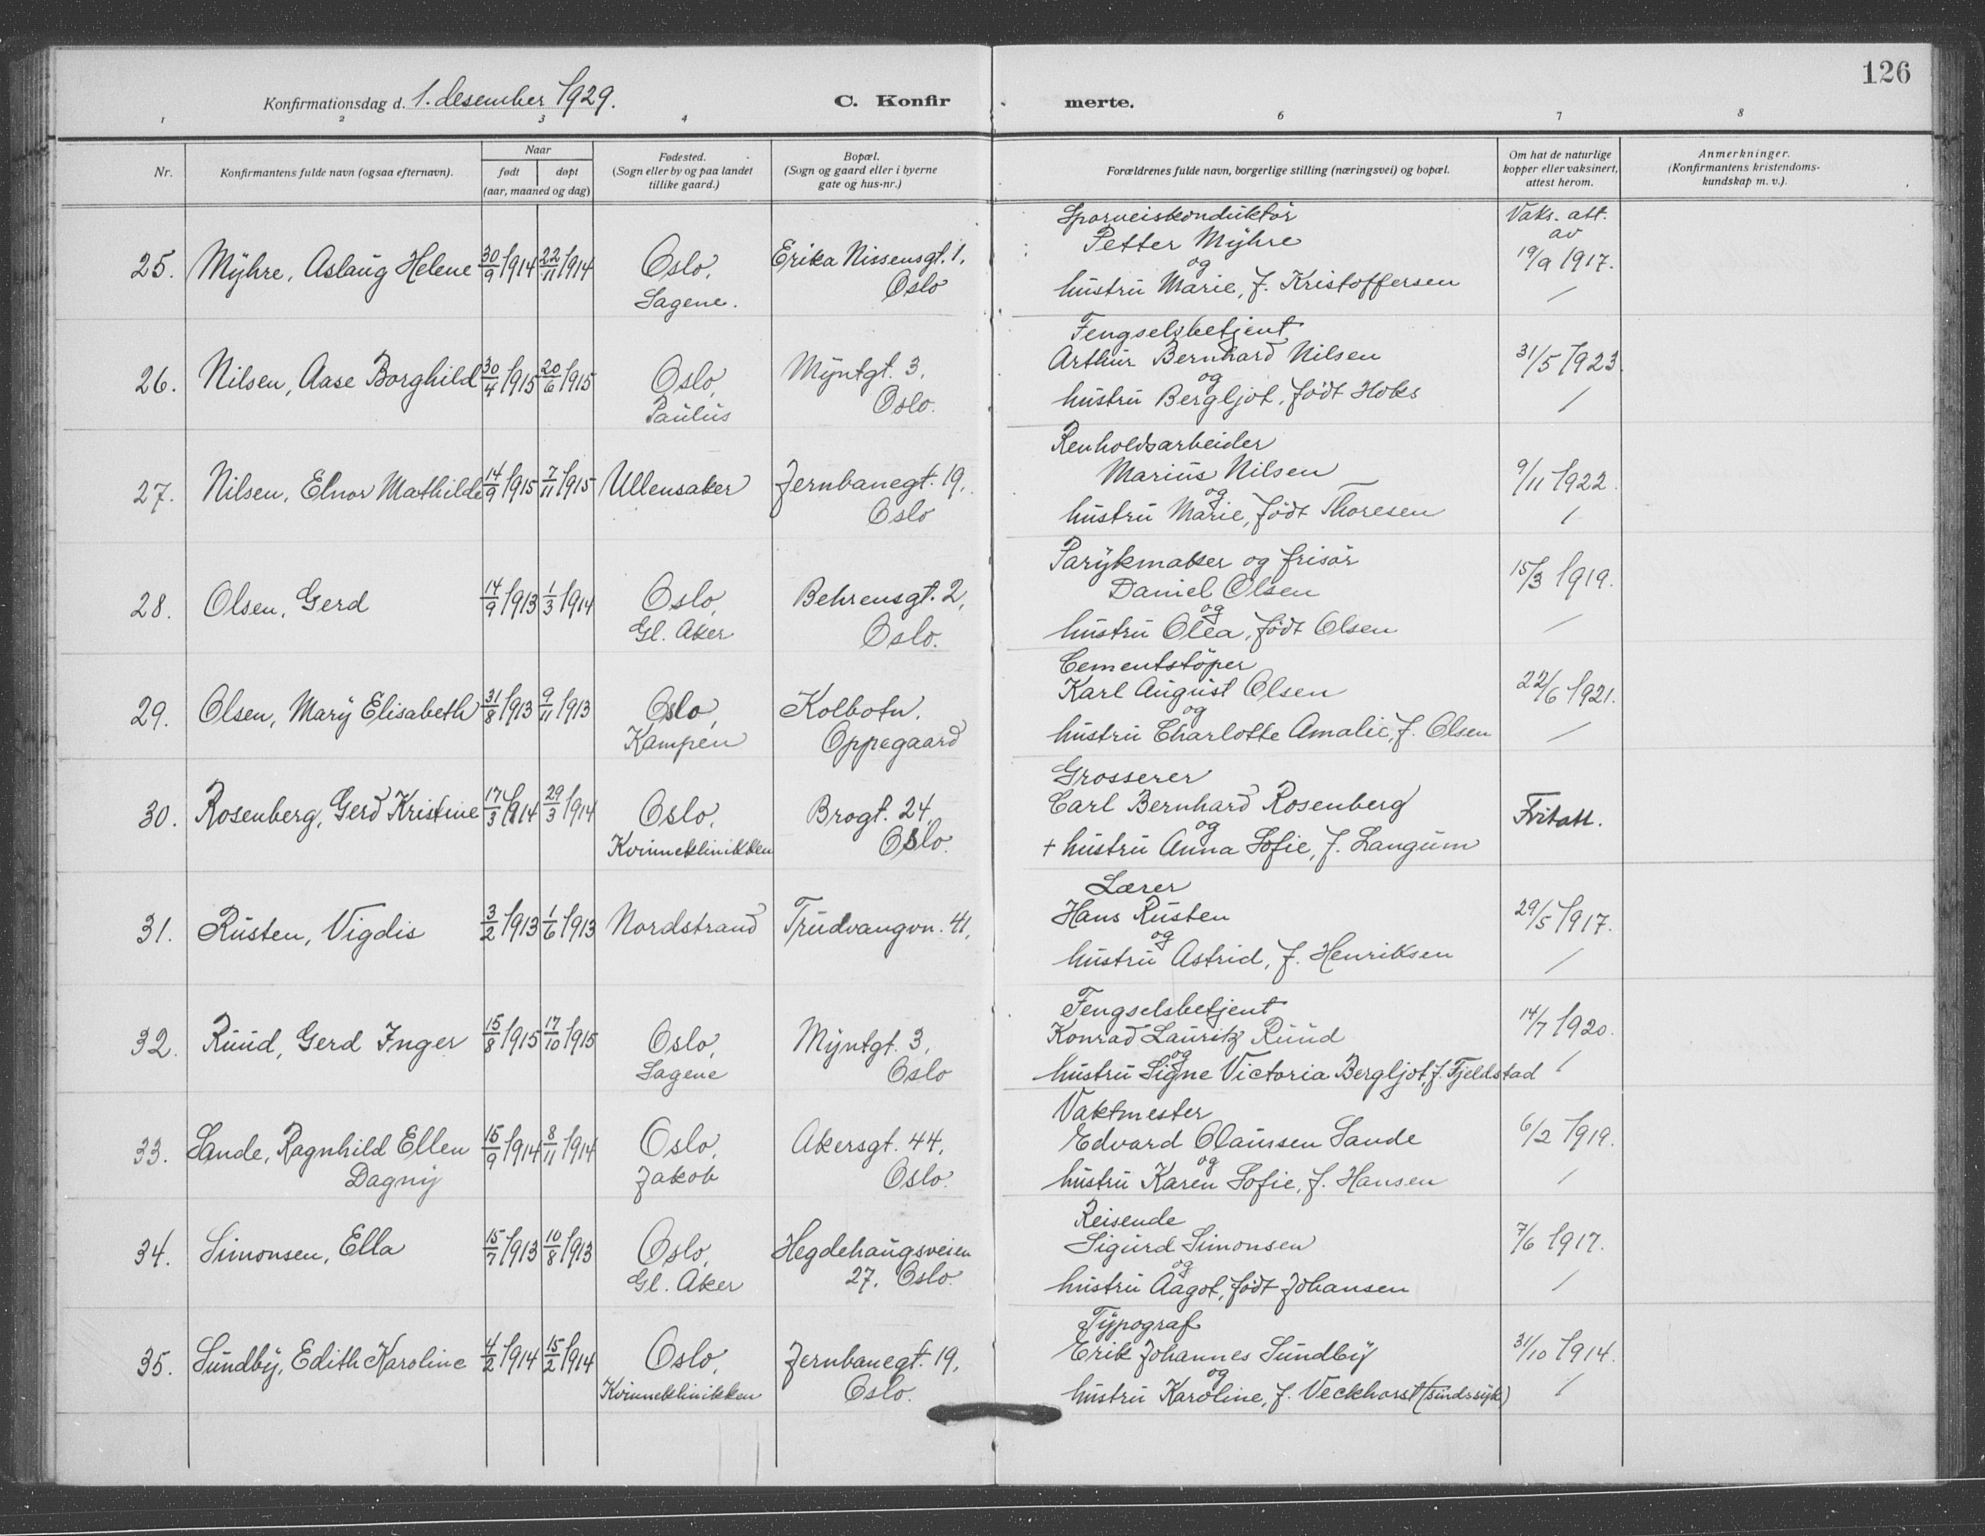 126
Konfirmationsdag d. 1. desember 1929. C. Konfir merte.
1 2 3 4 6 7 8
Nr.
Konfirmantens fulde navn (ogsaa efternavn).
Naar
født døpt
(aar, maaned og dag)
Fødested.
(Sogn eller by og paa landet
tillike gaard.)
Bopæl.
(Sogn og gaard eller i byerne
gate og hus-nr.)
Forældrenes fulde navn, borgerlige stilling (næringsvei) og bopæl.
Om hat de naturlige
kopper eller vaksinert,
attest herom.
Anmerkninger.
(Konfirmantens kristendoms-
kundskap m. v.).
25. Myhre, Aslaug Helene 30/9 1914 22/11 1914
Oslo,
Sagene.
Erika Nissensgt. 1,
Oslo
Sporveiskonduktør
Petter Myhre
og
hustru Marie, f. Kristoffersen
Vaks. att.
av
19/9 1917.
/
26. Nilsen, Aase Borghild 30/4 1915 20/6 1915
Oslo,
Paulus
Myntgt. 3,
Oslo.
Fengselsbetjent
Arthur Bernhard Nilsen
og
hustru Bergljot, født Hoks
31/5 1923.
/
27. Nilsen, Elnor Mathilde 14/9 1915 7/11 1915
Ullensaker
Jernbanegt. 19,
Oslo
Renholdsarbeider
Marius Nilsen
og
hustru Marie, født Thoresen
9/11 1922.
/
28. Olsen, Gerd 14/9 1913 1/3 1914
Oslo,
Gl. Aker
Behrensgt. 2,
Oslo.
Parykmaker og frisør
Daniel Olsen
og
hustru Olea, født Olsen
15/3 1919.
/
29. Olsen, Mary Elisabeth 31/8 1913 9/11 1913
Oslo,
Kampen
Kolbotn,
Oppegaard
Cementstøper
Karl August Olsen
og
hustru Charlotte Amalie, f. Olsen
22/6 1921.
/
30. Rosenberg, Gerd Kristine 17/3 1914 29/3 1914
Oslo,
Kvinneklinikken
Brogt. 24,
Oslo.
Grosserer
Carl Bernhard Rosenberg
og
+ hustru Anna Sofie, f. Langum
Fritatt.
31. Rusten, Vigdis 3/2 1913 1/6 1913
Nordstrand
Trudvangvn. 41,
Lærer
Hans Rusten
og
hustru Astrid, f. Henriksen
29/5 1917.
/
32. Ruud, Gerd Inger 15/8 1915 17/10 1915
Oslo,
Sagene
Myntgt. 3,
Oslo
Fengselsbetjent
Konrad Lauritz Ruud
og
hustru Signe Victoria Bergljot, f. Fjeldstad
14/7 1920.
/
33. Sande, Ragnhild Ellen 15/9 1914 8/11 1914
Dagny
Oslo,
Jakob
Akersgt. 44,
Oslo.
Vaktmester
Edvard Olausen Sande
og
hustru Karen Sofie, f. Hansen
6/2 1919.
/
34. Simonsen, Ella 15/7 1913 10/8 1913
Oslo,
Gl. Aker
Hegdehaugsveien
27, Oslo.
Reisende
Sigurd Simonsen
og
hustru Aagot, født Johansen
7/6 1917.
/
35. Sundby, Edith Karoline 4/2 1914 15/2 1914
Oslo,
Kvinneklinikken
Jernbanegt. 19,
Oslo.
Typograf
Erik Johannes Sundby
og
hustru Karoline, f. Veckhorst (sindssyk)
31/10 1914.
/